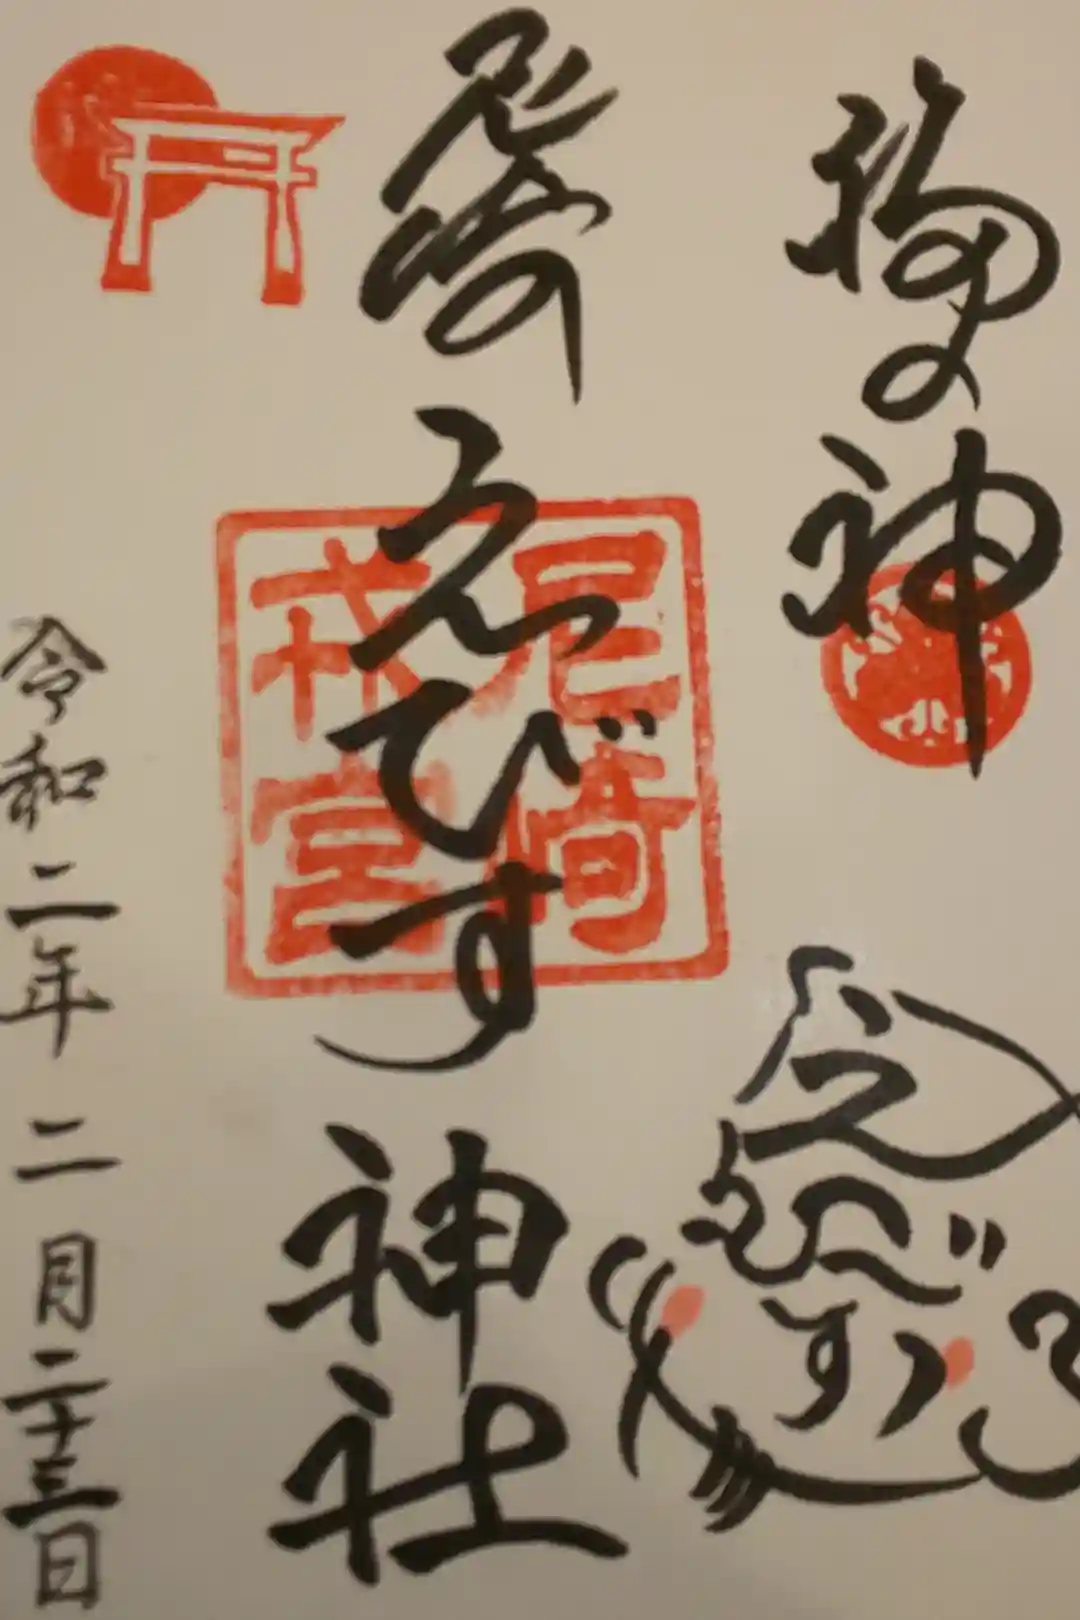 福の神
えびす
尼崎えびす神社
尼崎
戎宮
令和二年二月二十三日